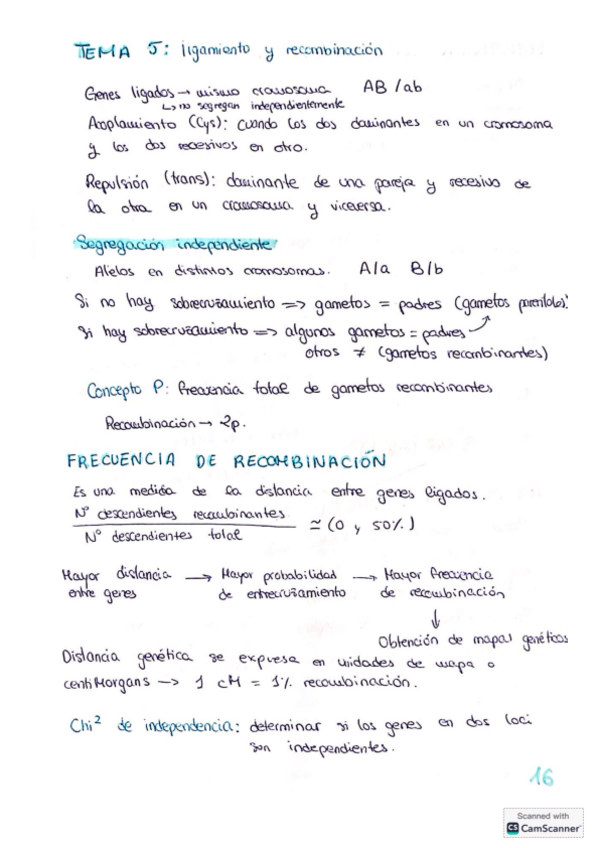 TEMA 5: ligamiento y recombinación
Genes ligados → mismo cromosoma AB/ab
↳ no segregan independientemente
Acoplamiento (Cys): cuando los dos dominantes en un cromosoma
y los dos recesivos en otro.
Repulsión (trans): dominante de una pareja y recesivo de
la otra en un cromosoma y viceversa.
Segregación independiente
Alelos en distintos cromosomas. A/a B/b
Si no hay sobrecruzamiento => gametos = padres (gametos parentales).
Si hay sobrecruzamiento => algunos gametos = padres
otros ≠ (gametos recombinantes)
Concepto P: frecuencia total de gametos recombinantes
Recombinación → 2p.
FRECUENCIA DE RECOMBINACIÓN
Es una medida de la distancia entre genes ligados.
Nº descendientes recombinantes
Nº descendientes total
≃ (0 y 50%)
Mayor distancia → Mayor probabilidad → Mayor frecuencia
entre genes de entrecruzamiento de recombinación
↓
Obtención de mapas genéticos
Distancia genética se expresa en unidades de mapa o
centiMorgans → 1 cM = 1% recombinación.
Chi² de independencia: determinar si los genes en dos loci
son independientes.
16
Scanned with
CS CamScanner